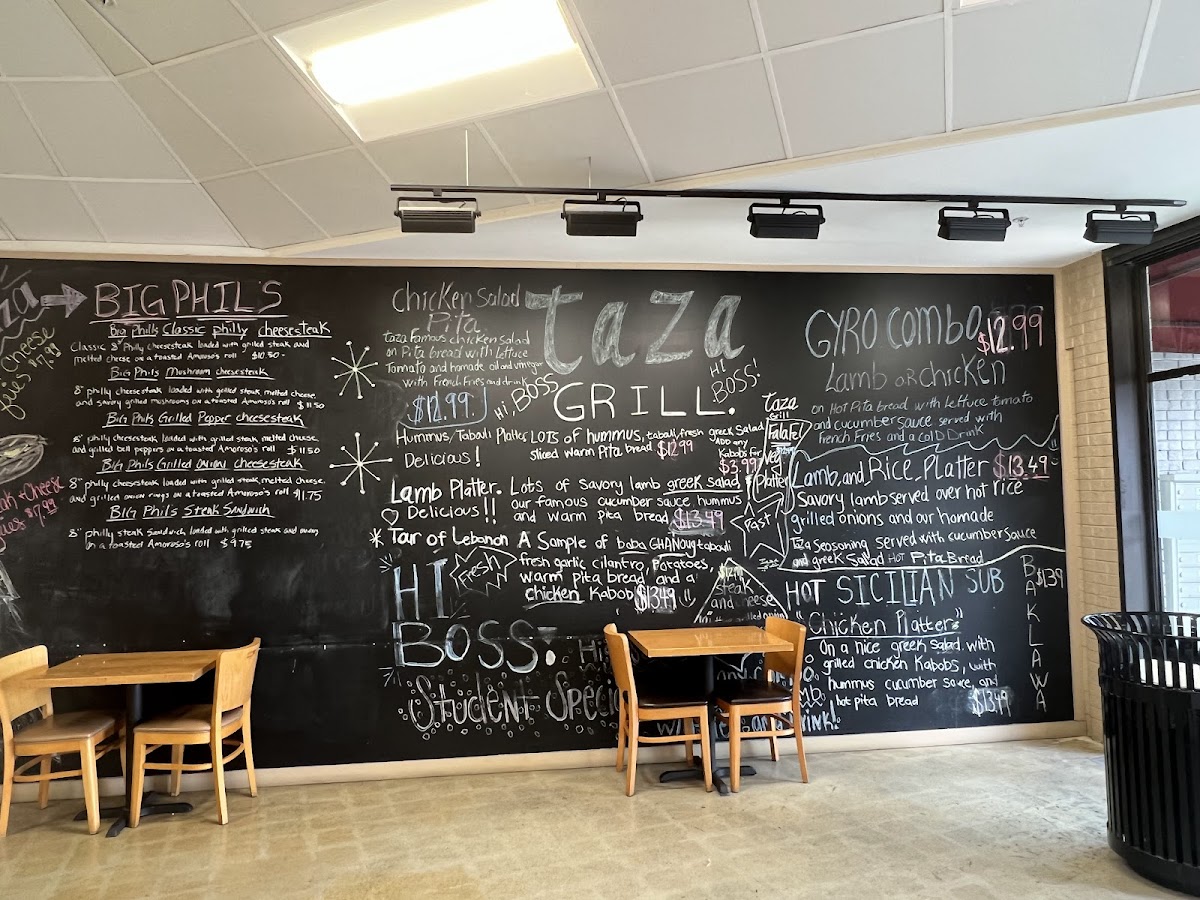 za
Cheese
$7.99
Steak + Cheese
$7.99
BIG PHIL'S
Big Phill's Classic philly cheesesteak
Classic 8" Philly Cheesesteak loaded with grilled steak and
melted cheese on a toasted Amoroso's roll $10.50
Big Phils Mushroom cheesesteak
8" philly cheesesteak loaded with grilled steak melted cheese
and savory grilled mushrooms on a toasted Amoroso's roll $11.50
Big Phils Grilled Pepper cheesesteak
8" philly cheesesteak loaded with grilled steak melted cheese
and grilled bell peppers on a toasted Amoroso's roll $11.50
Big Phils Grilled Onion cheesesteak
8" philly cheesesteak loaded with grilled steak, melted cheese,
and grilled onion rings on a toasted Amoroso's roll $11.75
BIG Phil's Steak Sandwich
8" philly steak sandwich loaded with grilled steak and onion
on a toasted Amoroso's roll $9.75
Chicken Salad
Pita
taza famous chicken salad
on Pita bread with Lettuce
Tomato and homade oil and vinegar
with French Fries and drink
$12.99
taza
GRILL.
Hi, BOSS
Hi BOSS!
Hummus/Tabouli Platter LOTS of hummus, tabouli, fresh greek Salad
Delicious! sliced warm Pita bread $12.99
ADD any
Kabobs for
$3.99
Lamb Platter. Lots of Savory lamb greek salad
Delicious!! our famous cucumber sauce hummus
and warm pita bread $13.49
* Tour of Lebanon A Sample of baba GHANOUJ tabouli
fresh garlic cilantro, Potatoes,
warm pita bread and a
chicken Kabob $13.49 !!
Fresh
HI
BOSS.
Student Special
and a
drink!
taza
Grill
Falafel
Veg
Platter
Fast
$12.99
Steak
and cheese
GYRO COMBO $12.99
Lamb OR Chicken
on HOT Pita bread with Lettuce tomato
and cucumber sauce served with
french Fries and a COLD Drink
Lamb and Rice Platter $13.49
Savory lamb served over hot rice
grilled onions and our homade
Taza Seasoning served with cucumber sauce
and greek Salad HOT Pita Bread
HOT SICILIAN SUB
"Chicken Platter"
On a nice greek Salad with
grilled chicken Kabobs, with
hummus cucumber sauce, and
hot pita bread $13.49
BAKLAWA